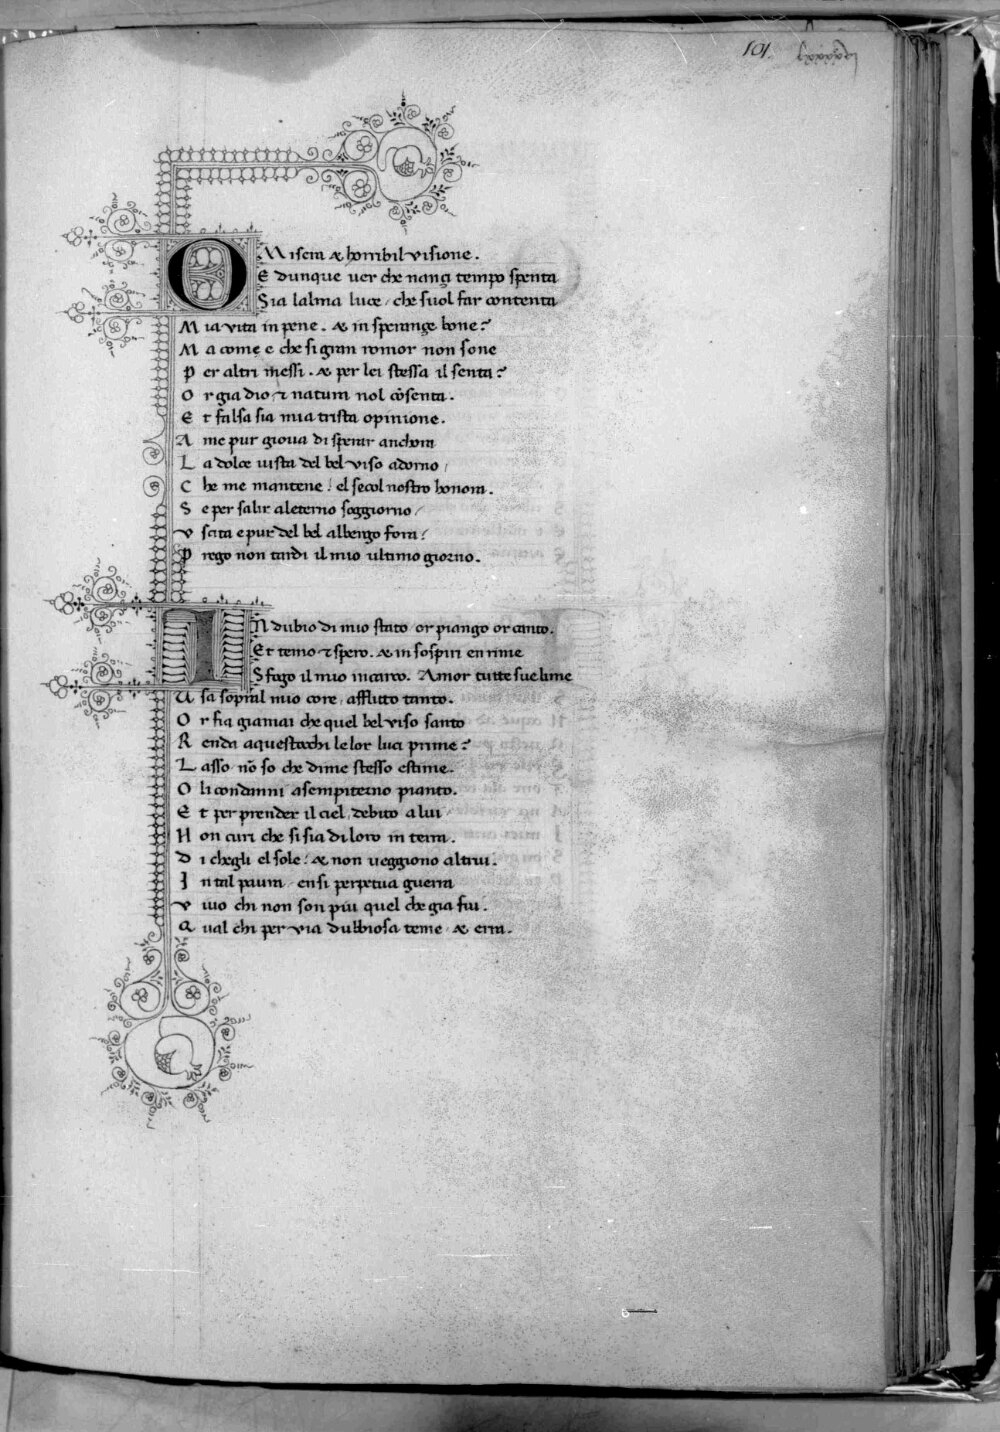 101. lxxxxi
O Misera & horribil visione.
E dunque uer che nanzi tempo spenta
Sia lalma luce / che suol far contenta
Mia vita in pene. & in speranze bone?
Ma come e che si gran romor non sone
Per altri messi. & per lei stessa il senta?
Or gia dio & natura nol cōsenta.
Et falsa sia mia trista opinione.
A me pur gioua di sperar anchora
La dolce uista del bel viso adorno /
Che me mantene / el secol nostro honora.
Se per salir aleterno soggiorno /
Vscita e pur del bel albergo fora /
Prego non tardi il mio ultimo giorno.
IN dubio di mio stato or piango or canto.
Et temo & spero. & in sospiri en rime
Sfogo il mio incarco. Amor tutte sue lime
Usa sopral mio core / afflitto tanto.
Or fia giamai che quel bel viso santo
Renda aquestocchi le lor luci prime?
Lasso nō so che dime stesso estime.
O li condanni asempiterno pianto.
Et per prender il ciel / debito a lui /
Non curi che si sia di loro in terra.
Di chegli el sole / & non ueggiono altrui.
In tal paura / ensi perpetua guerra
Viuo chi non son piu quel che gia fui.
Qual chi per via dubbiosa teme & erra.